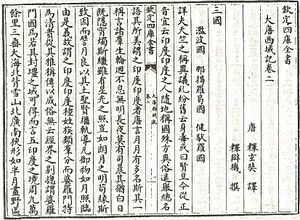 欽定四庫全書
大唐西域記卷二
唐 釋玄奘 譯
釋辯機 撰
三國
濫波國 那揭羅曷國 健馱羅國
詳夫天竺之稱異議糾紛舊云身毒或曰賢豆今從正
音宜云印度印度之人隨地稱國殊方異俗遙舉總名
欽定四庫全書
大唐西域記
語其所美謂之印度印度者唐言月月有多名斯其一
稱言諸羣生輪廻不息無明長夜莫有司晨其猶白日
既隱宵燭斯繼雖有星光之照豈如朗月之明苟緣斯
致因而譬月良以其土聖賢繼軌導凡御物如月照臨
由是義故謂之印度印度種姓族類羣分而婆羅門特
為清貴從其雅稱傳以成俗無云經界之别總謂婆羅
門國焉若其封疆之域可得而言五印度之境周九萬
餘里三垂大海北背雪山北廣南狹形如半月畫野區